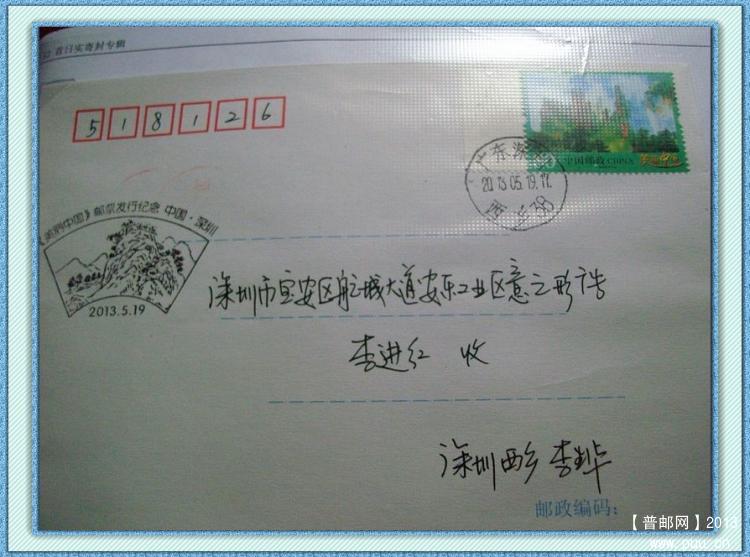 首日实寄封专辑
518126
中国邮政 CHINA
广东深圳
2013.05.19.17
西乡38
《美丽中国》邮票发行纪念 中国·深圳
2013.5.19
深圳市宝安区航城大道安乐工业区意之形广告
李进红 收
深圳西乡 李
邮政编码：
【普邮网】2013